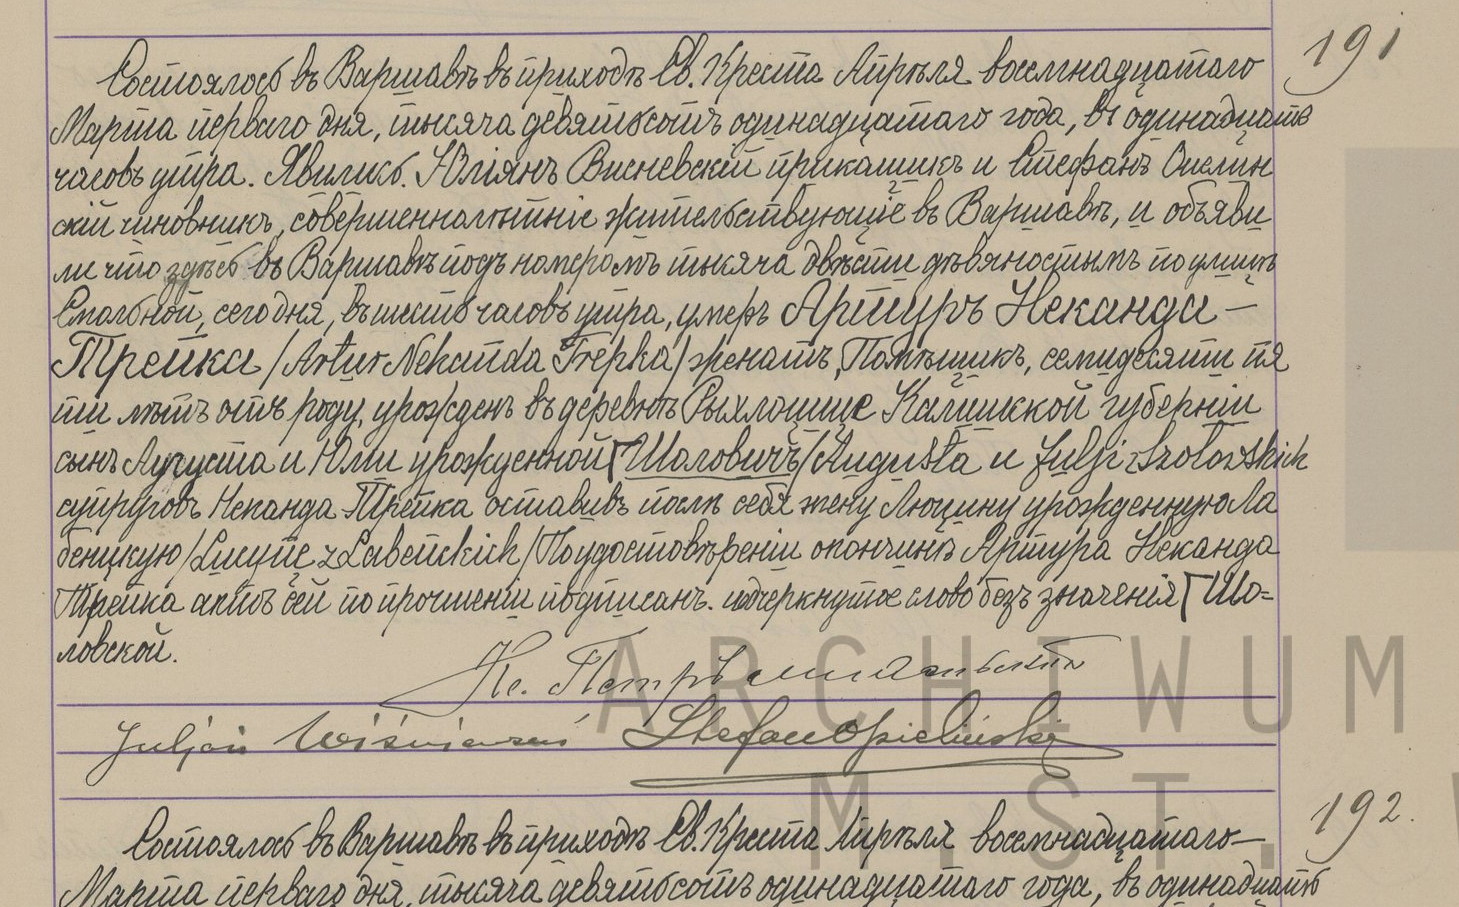 191
Состоялось въ Варшавѣ въ приходѣ Св. Креста Апрѣля восемнадцатаго
Марта перваго дня, тысяча девятьсотъ одинадцатаго года, въ одинадцать
часовъ утра. Явились. Юліянъ Висневскій прикащикъ и Стефанъ Опелин
скій чиновникъ, совершеннолѣтніе жительствующіе въ Варшавѣ, и объяви
ли что здѣсь въ Варшавѣ подъ номеромъ тысяча двѣсти дѣвяностымъ по улицѣ
сегодня, въ шесть часовъ утра, умеръ Артуръ Неканда-
Трепка /Artur Nekanda Trepka/ женатъ, Помѣщикъ, семидесяти пя
ти лѣтъ отъ роду, урожденъ въ деревнѣ Рыхлоцице Калишкой губерніи
сынъ Августа и Юліи урожденной Шоловичъ /Augusta и Julji z Szolowskich
супруговъ Неканда-Трепка оставивъ послѣ себя жену Люцину урожденную Ла
бенцкую /Lucynę z Łabęckich/ По удостовѣреніи окончинѣ Артура Неканда
Трепка актъ сей по прочтеніи подписанъ. подчеркнутое слово безъ значенія Шо=
ловской.
Кс. Петръ
Juljan Wiśniewski Stefan Opieliński
ARCHIWUM
M. ST. W
192.
Состоялось въ Варшавѣ въ приходѣ Св. Креста Апрѣля восемнадцатаго-
Марта перваго дня, тысяча девятьсотъ одинадцатаго года, въ одинадцать